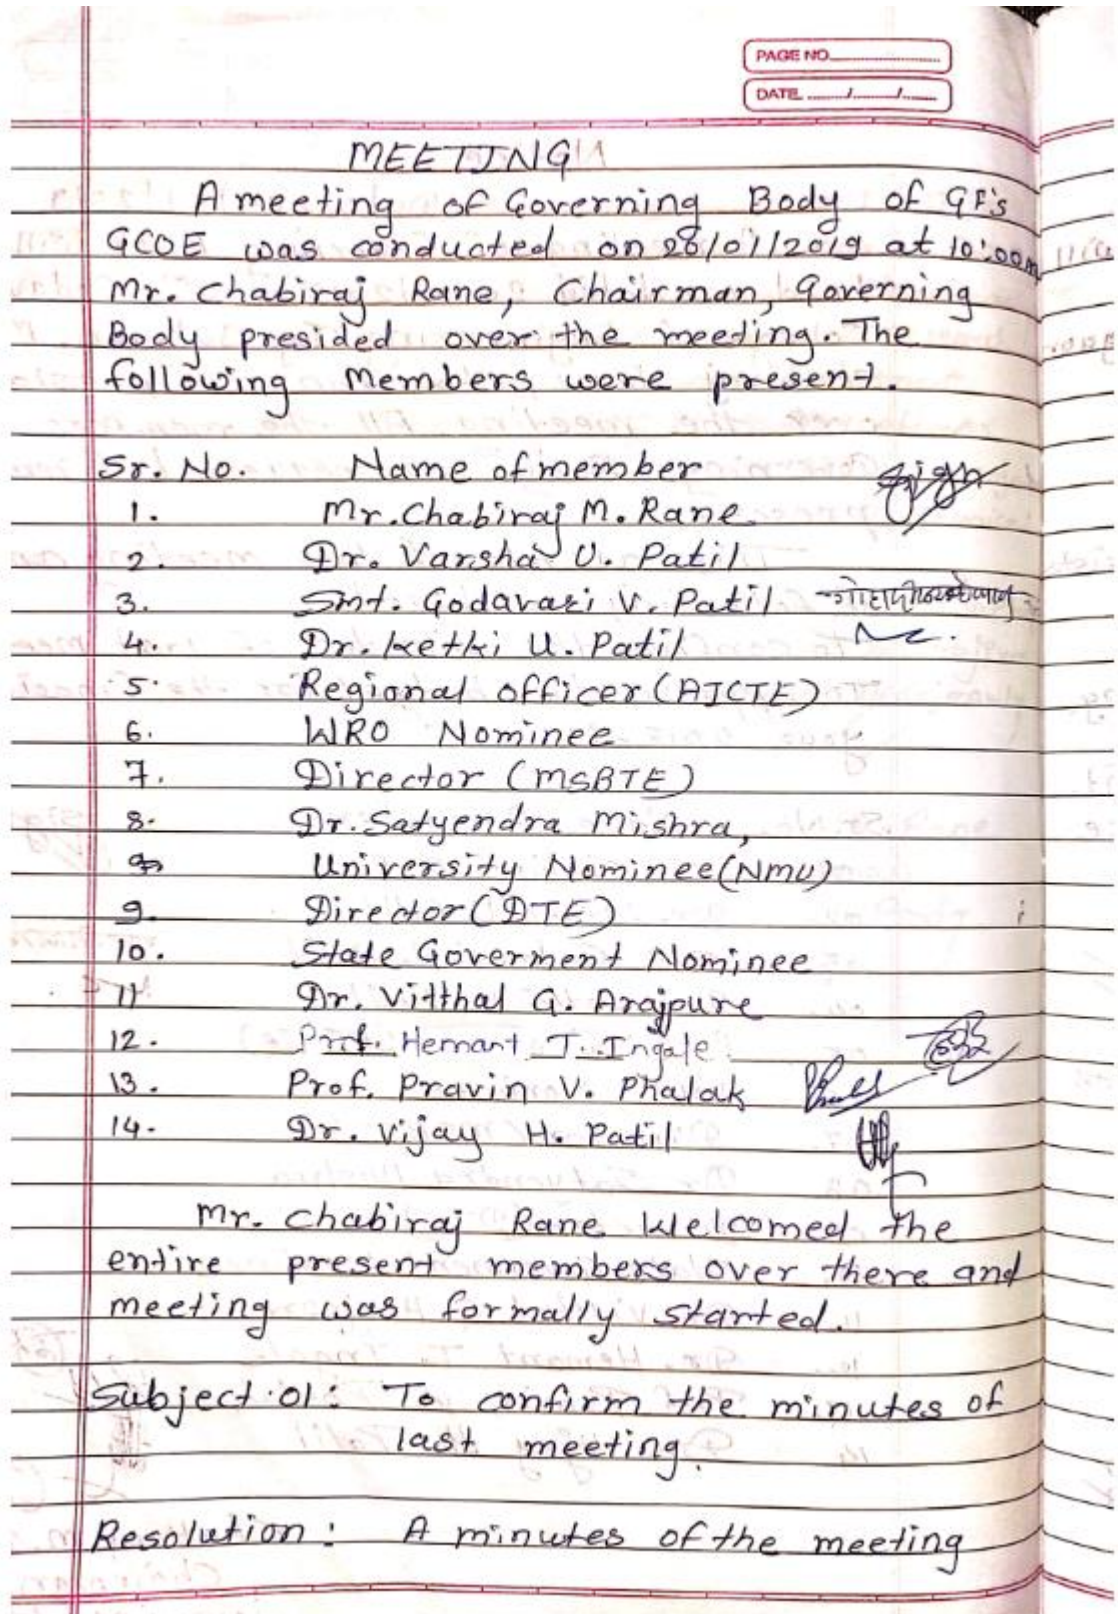 PAGE NO.
DATE / /
MEETING
A meeting of Governing Body of GF's
GCOE was conducted on 26/01/2019 at 10:00am
Mr. Chabiraj Rane, Chairman, Governing
Body presided over the meeting. The
following Members were present.
Sr. No. Name of member Sign
1. Mr. Chabiraj M. Rane
2. Dr. Varsha U. Patil
3. Smt. Godavari V. Patil
4. Dr. Ketki U. Patil
5. Regional officer (AICTE)
6. WRO Nominee
7. Director (MSBTE)
8. Dr. Satyendra Mishra,
University Nominee (NMU)
9. Director (DTE)
10. State Goverment Nominee
11 Dr. Vitthal G. Arajpure
12. Prof. Hemant T. Ingale
13. Prof. Pravin V. Phalak
14. Dr. Vijay H. Patil
Mr. Chabiraj Rane Welcomed the
entire present members over there and
meeting was formally started.
Subject 01: To confirm the minutes of
last meeting.
Resolution: A minutes of the meeting